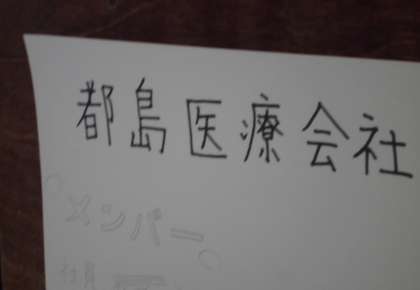 都島医療会社
メンバー